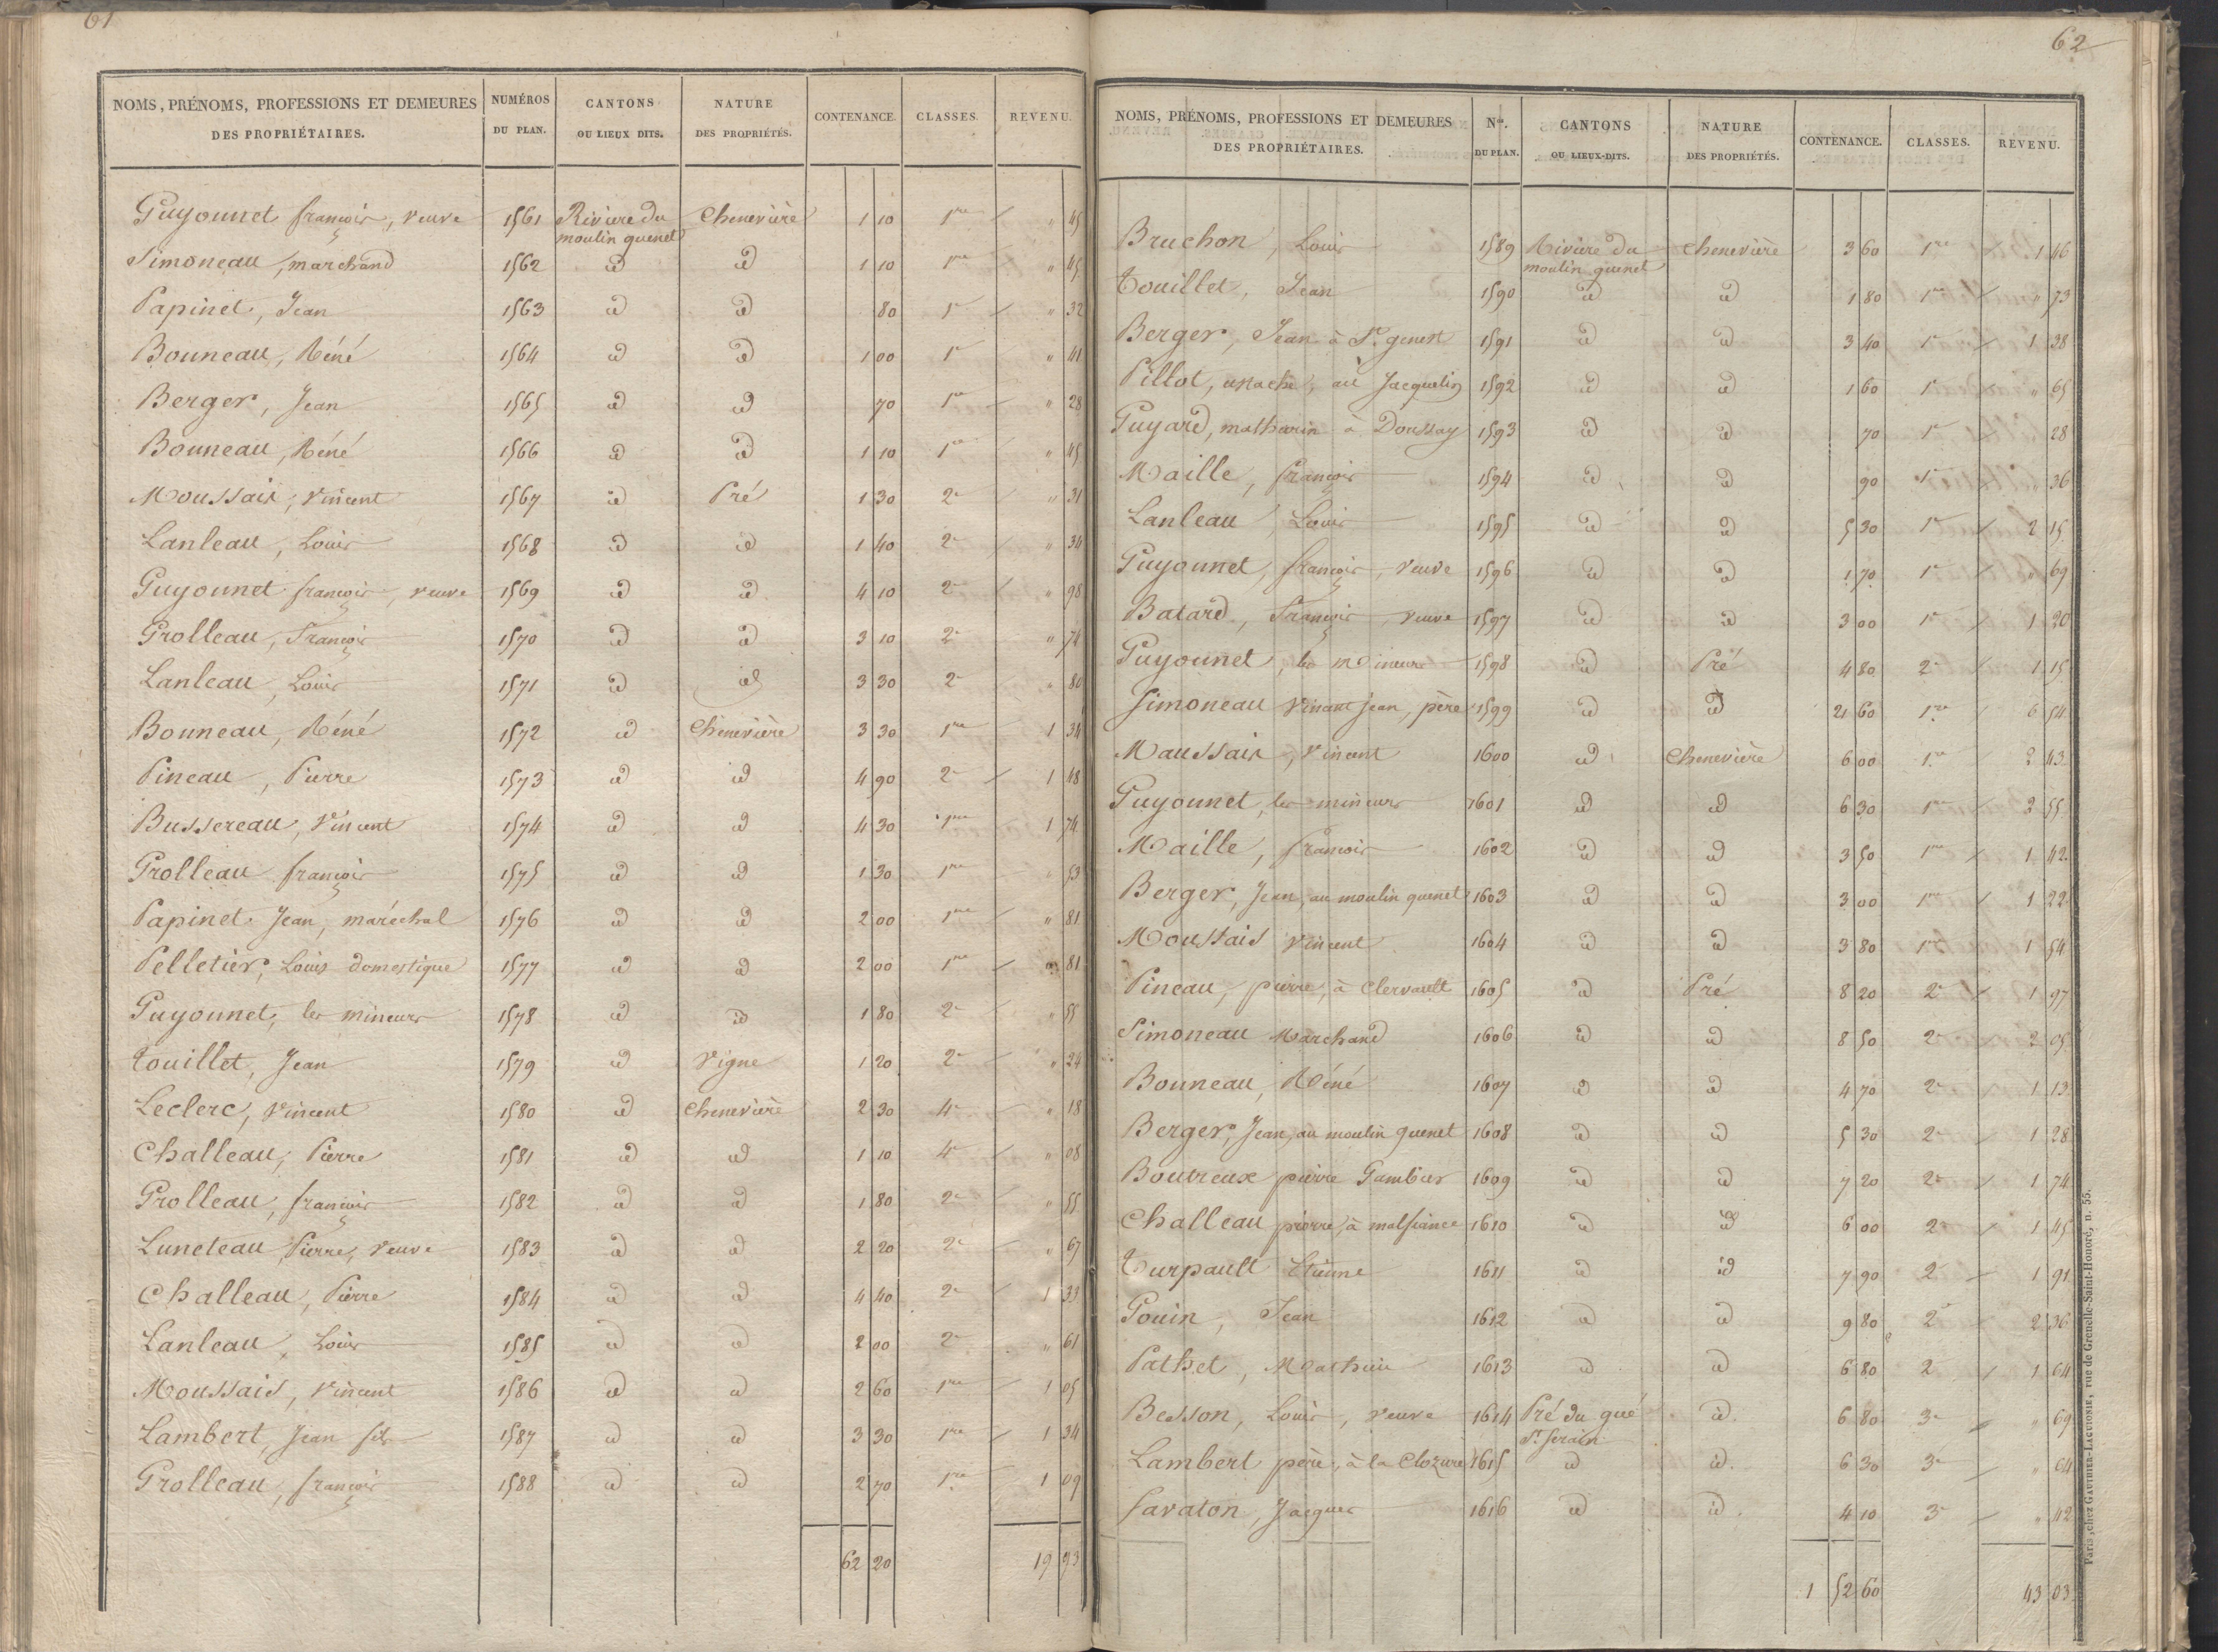 61
NOMS, PRÉNOMS, PROFESSIONS ET DEMEURES DES PROPRIÉTAIRES. NUMÉROS DU PLAN. CANTONS OU LIEUX DITS. NATURE DES PROPRIÉTÉS. CONTENANCE. CLASSES. REVENU.
Guyonnet françois, veuve 1561 Riviere du moulin quenet Chenevière 1 10 1re " 45
Simoneau, marchand 1562 id id 1 10 1re " 45
Papinet, Jean 1563 id id 80 1re " 32
Bonneau, Réné 1564 id id 1 00 1re " 41
Berger, Jean 1565 id id 70 1re " 28
Bonneau, Réné 1566 id id 1 10 1re " 45
Moussais, Vincent 1567 id Pré 1 30 2e " 31
Lanleau, Louis 1568 id id 1 40 2e " 34
Guyonnet françois, veuve 1569 id id 4 10 2e " 98
Grolleau, François 1570 id id 3 10 2e " 74
Lanleau, Louis 1571 id id 3 30 2e " 80
Bonneau, Réné 1572 id Chenevière 3 30 1re 1 34
Pineau, Pierre 1573 id id 4 90 2e 1 48
Bussereau, Vincent 1574 id id 4 30 1re 1 74
Grolleau françois 1575 id id 1 30 1re " 53
Papinet Jean, maréchal 1576 id id 2 00 1re " 81
Pelletier, Louis domestique 1577 id id 2 00 1re " 81
Guyonnet, les mineurs 1578 id id 1 80 2e " 55
Touillet, Jean 1579 id Vigne 1 20 2e " 24
Leclerc, Vincent 1580 id Chenevière 2 30 4e " 18
Challeau, Pierre 1581 id id 1 10 4e " 08
Grolleau, françois 1582 id id 1 80 2e " 55
Luneteau Pierre, veuve 1583 id id 2 20 2e " 67
Challeau, Pierre 1584 id id 4 40 2e 1 33
Lanleau, Louis 1585 id id 2 00 2e " 61
Moussais, Vincent 1586 id id 2 60 1re 1 05
Lambert, Jean fils 1587 id id 3 30 1re 1 34
Grolleau, françois 1588 id id 2 70 1re 1 09
62 20 19 93
62
NOMS, PRÉNOMS, PROFESSIONS ET DEMEURES DES PROPRIÉTAIRES. Nos. DU PLAN. CANTONS OU LIEUX-DITS. NATURE DES PROPRIÉTÉS. CONTENANCE. CLASSES. REVENU.
Bruchon, Louis 1589 Riviere du moulin quenet Chenevière 3 60 1re 1 46
Touillet, Jean 1590 id id 1 80 1re " 73
Berger, Jean à St genest 1591 id id 3 40 1re 1 38
Pillot, au Jacquelin 1592 id id 1 60 1re " 65
Guyard, mathurin à Doussay 1593 id id 70 1re 28
Maille, françois 1594 id id 90 1re " 36
Lanleau, Louis 1595 id id 5 30 1re 2 15
Guyonnet, françois, veuve 1596 id id 1 70 1re " 69
Batard, François veuve 1597 id id 3 00 1re 1 20
Guyonnet, les mineurs 1598 id Pré 4 80 2e 1 15
Simoneau Vincent Jean, père 1599 id id 21 60 1re 6 54
Maussais, Vincent 1600 id Chenevière 6 00 1re 2 43
Guyonnet, les mineurs 1601 id id 6 30 1re 2 55
Maille, françois 1602 id id 3 50 1re 1 42
Berger, Jean, au moulin quenet 1603 id id 3 00 1re 1 22
Moussais Vincent 1604 id id 3 80 1re 1 54
Pineau, pierre, à Clervault 1605 id Pré 8 20 2e 1 97
Simoneau Marchand 1606 id id 8 50 2e 2 05
Bonneau, Réné 1607 id id 4 70 2e 1 13
Berger, Jean, au moulin quenet 1608 id id 5 30 2e 1 28
Boutreux pierre Gambier 1609 id id 7 20 2e 1 74
Challeau pierre, à malfiance 1610 id id 6 00 2e 1 45
Turpault Etienne 1611 id id 7 90 2e 1 91
Gouin, Jean 1612 id id 9 80 2e 2 36
Pathet, Mathurin 1613 id id 6 80 2 1 64
Besson, Louis, veuve 1614 Pré du gué St Serain id. 6 80 3e " 69
Lambert père, à la Clozure 1615 id id. 6 30 3e " 64
Savaton, Jacques 1616 id id. 4 10 3e " 42
1 52 60 43 03
Paris, chez GAUTHIER-LAGUIONIE, rue de Grenelle-Saint-Honoré, n. 55.